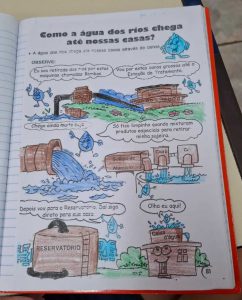 Como a água dos rios chega
até nossas casas?
A água dos rios chega às nossas casas através de canos.
OBSERVE:
Eu sou retirada dos rios por estas
máquinas chamadas Bombas.
Vou por estes canos grossos até a
Estação de Tratamento.
Chego ainda muito suja.
Só fico limpinha quando misturam
produtos especiais para retirar
minha sujeira.
Depois vou para o Reservatório. Daí sigo
direto para sua casa.
Olha eu aqui!
RESERVATÓRIO
81